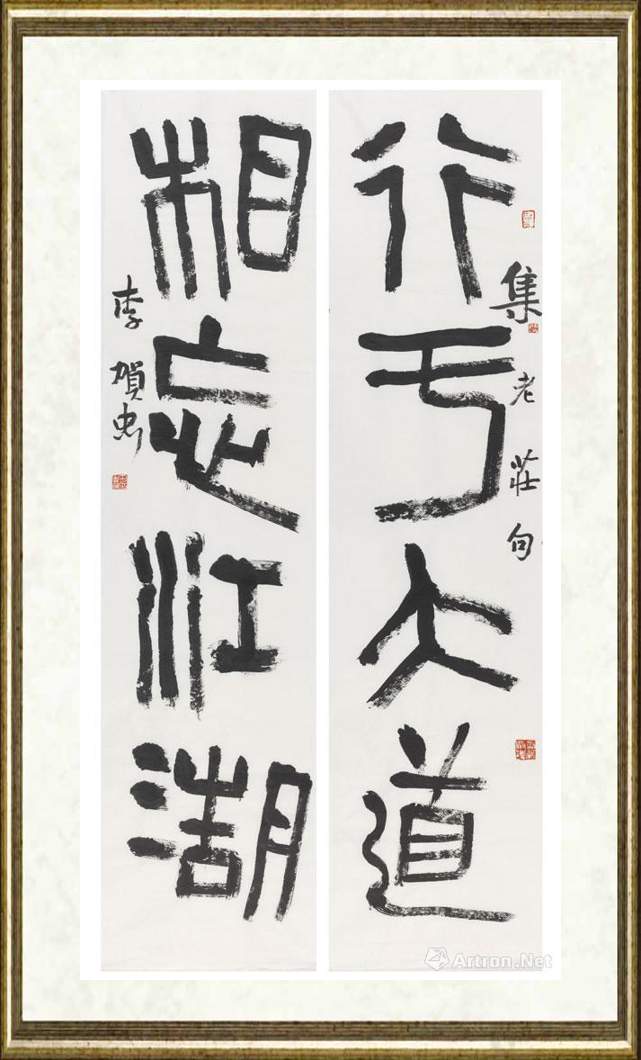 行于大道
集老莊句
相忘江湖
李賀忠
Artron.Net